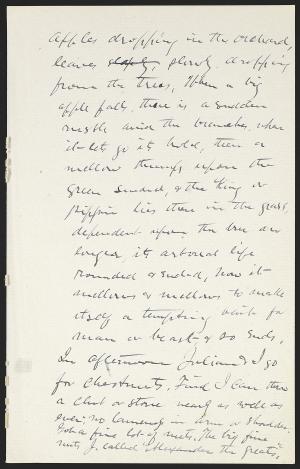 apples dropping in the orchard,
leaves slowly, slowly dropping
from the trees, When a big
apple falls, there is a sudden
rustle amid the branches when
it lets go its hold, then a
mellow thump upon the
green sward, & the King or
Pippin lies there in the grass,
dependent upon the tree no
longer, its arboreal life
rounded & ended, how it
mellows & mellows to make
itself a tempting bait for
man or beast & so ends.
In afternoon Julian & I go
for chestnuts, Find I can throw
a club or stone nearly as well as
ever; no lameness in arm or shoulder.
Got a fine lot of nuts. The big fine
nuts J. called "Alexander the Great's",